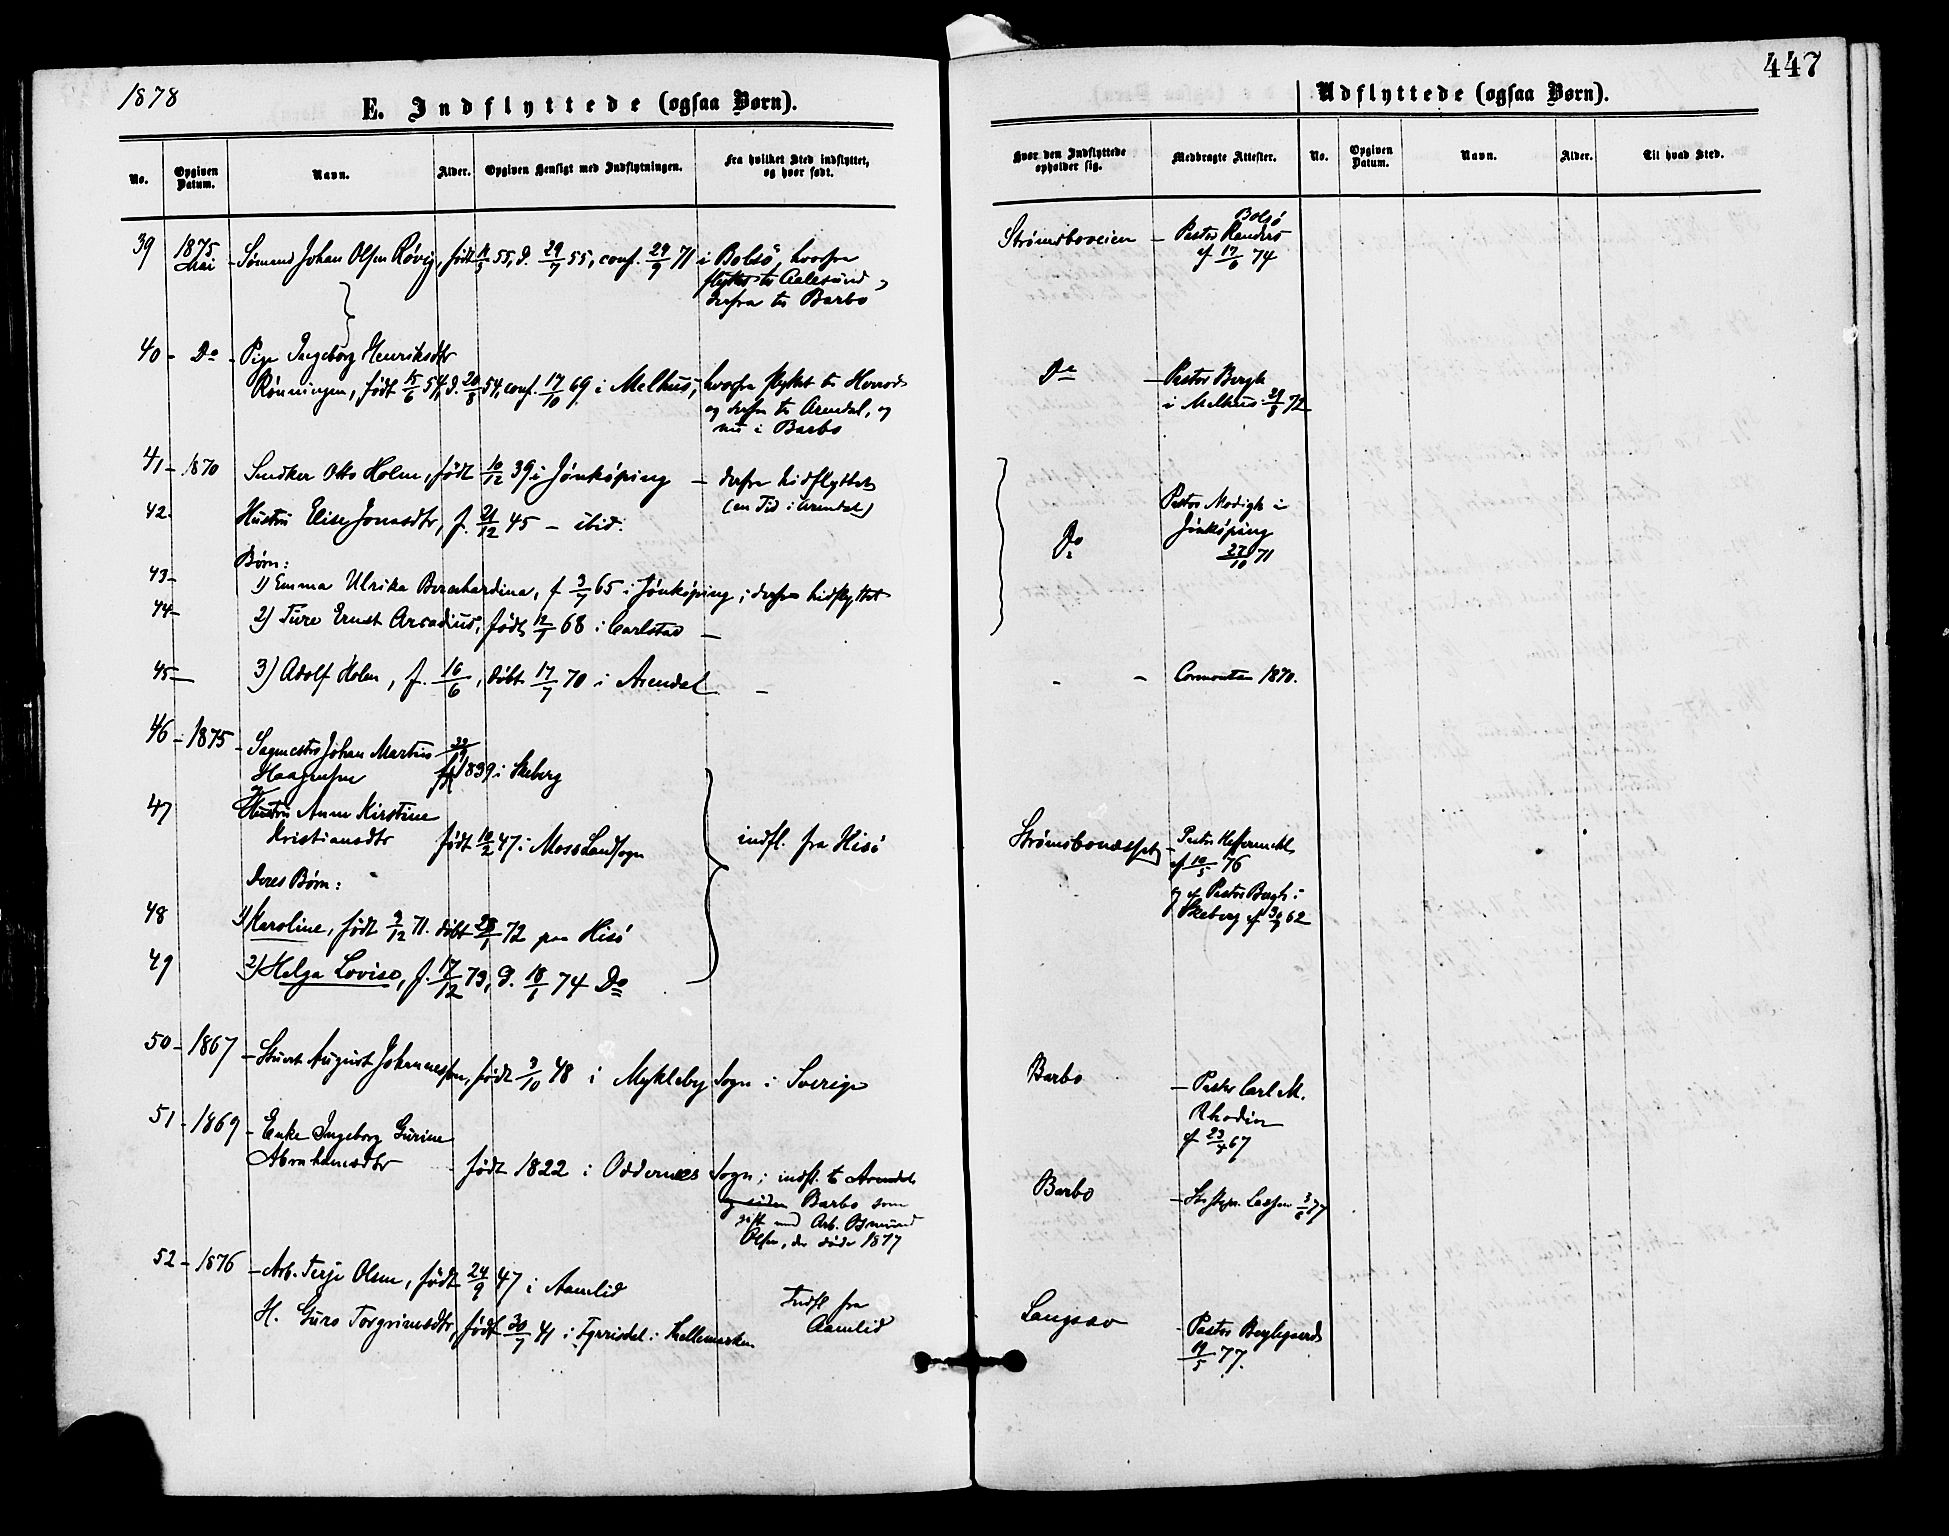 1878
E. Indflyttede (ogsaa Børn).
No. Opgiven Datum. Navn. Alder. Opgiven Hensigt med Indflytningen. Fra hvilket Sted indflyttet, og hvor født.
39 1875 Mai - Sømand Johan Olsen Røvig, født 11/5 55, d. 29/7 55, conf. 24/9 71 i Bolsø, hvorfra
flyttet til Aalesund,
derfra til Barbo
40 - Do - Pige Ingeborg Henriksdtr
Rønningen, født 15/6 54, d. 20/8 54, conf. 17/10 69 i Melhus, hvorfra flyttet til
og derfra til Arendal, og
nu i Barbo
41 - 1870 Snedker Otto Holm, født 10/12 39 i Jönköping - derfra hidflyttet
(en Tid i Arendal)
42. Hustru Elise Jonasdtr, f. 21/12 45 - ibid.
Børn:
43 - 1) Emma Ulrika Bernhardina, f 3/7 65 i Jönköping; derfra hidflyttet
44 - 2) Ture Ernst Arcadius, født 12/7 68 i Carlstad -
45 - 3) Adolf Holm, f. 16/6, døbt 17/7 70 i Arendal -
46 - 1875 - Sagmester Johan Martin
Haagensen 1839 i Skeberg
47 Hustru Anne Kirstine
Kristiansdtr født 10/2 47 i Moss Landsogn
indfl. fra Hisø
Deres Børn:
48 1) Karoline, født 2/12 71. døbt 28/1 72 paa Hisø
49 2) Helga Lovise, f. 17/12 73, d. 18/1 74 Do
50 - 1867 - August Johannessen, født 3/10 48 i Mykleby Sogn i Sverige
51 - 1869 - Enke Ingeborg Gurine
Abrahamsdtr født 1822 i Oddernes Sogn; indfl. til Arendal
og siden Barbo som
gift med Arb. Osmund
Olsen, der døde 1877
52 - 1876 - Arb. Terje Olsen, født 24/9 47 i Aamlid
Indfl fra
H. Guro Torgrimsdtr, født 30/7 41 i Tyrisdal i Thellemarken
Aamlid
447
Udflyttede (ogsaa Børn).
Hvor den Indflyttede opholder sig. Medbragte Attester. No. Opgiven Datum. Navn. Alder. Til hvad Sted.
Strømsboveien - Pastor Randers
Bolsø
af 17/6 74
Do - Pastor Bergh
i Melhus 29/8 72
Do Pastor Modigh i
Jönköping
27/10 71
- - 1870.
Strømsbonæsset - Pastor
af 10/5 76
og af Pastor Bergh i
Skeberg af 62
Barbo - Pastor Carl M.
Rhodin
af 23/4 67
Barbo - Lassen 77
Langsæ - Pastor
19/5 77.